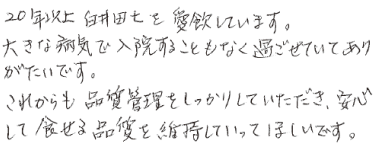 20年以上 臼井田七を愛飲しています。
大きな病気で入院することもなく過ごせていてあり
がたいです。
これからも品質管理をしっかりしていただき、安心
して飲せる品質を維持していってほしいです。